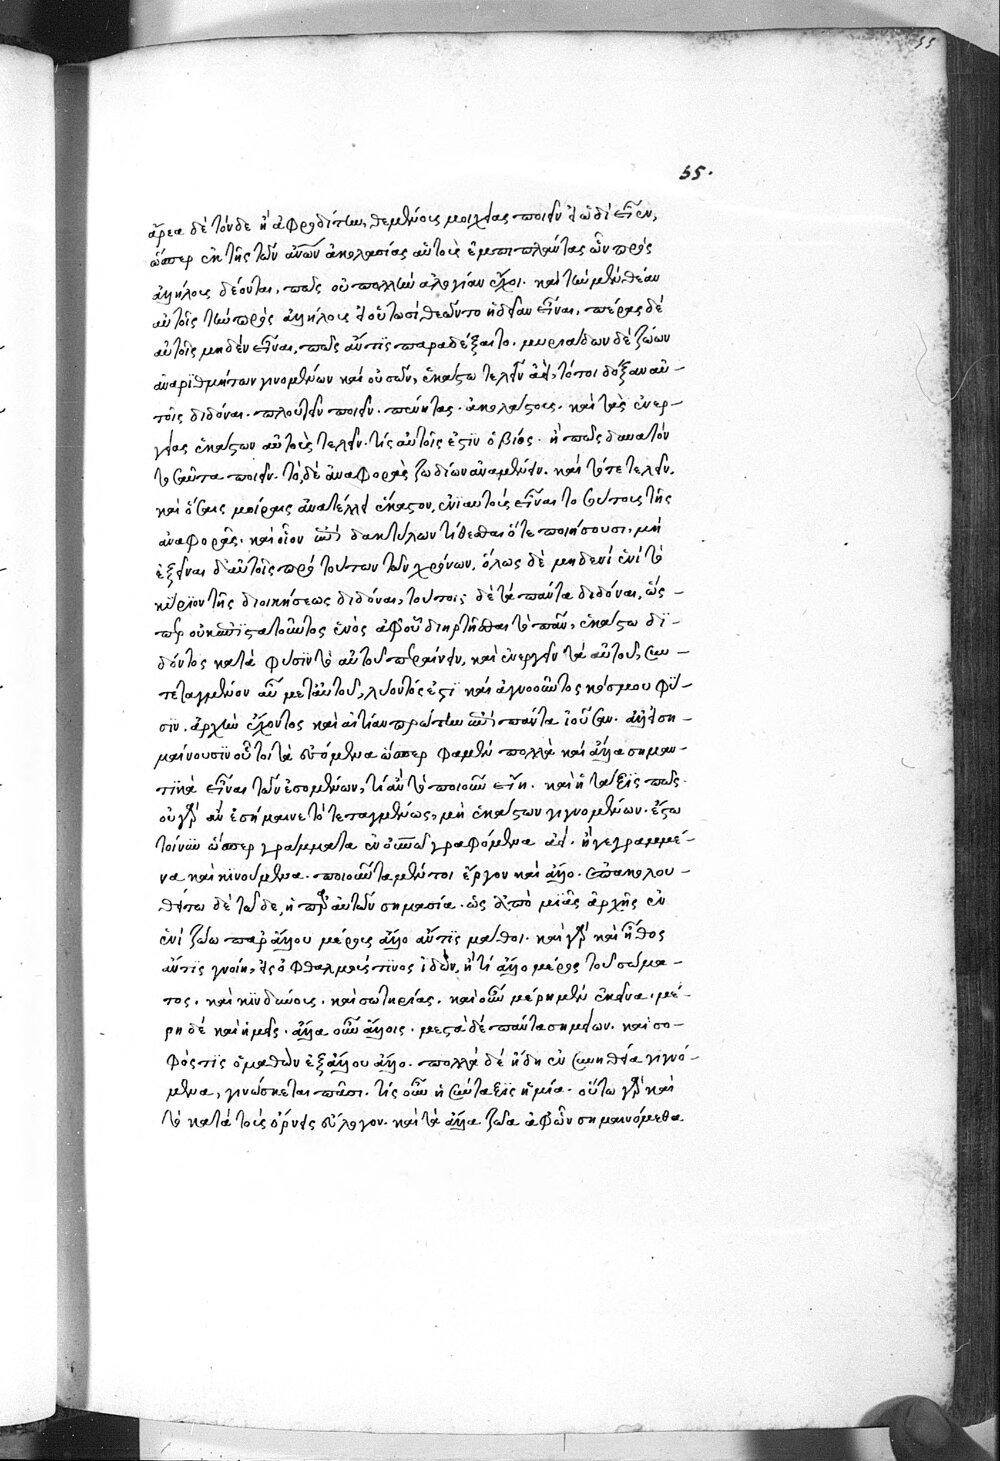 ἄρεα δὲ τόνδε ἢ ἀφροδίτην, θεμένους μοιχείας ποιεῖν εἰ ὡδὶ εἶεν,
ὥσπερ ἐκ τῆς τῶν ἀνῶν ἀκολασίας αὐτοὺς ἐμπιπλάντας ὧν πρὸς
ἀλλήλους δέονται, πῶς οὐ πολλὴν ἀλογίαν ἔχοι. καὶ τὴν μὲν θέαν
αὐτοῖς τὴν πρὸς ἀλλήλους εἰ οὑτωσὶ θεῶντο ἡδεῖαν εἶναι, πέρας δὲ
αὐτοῖς μηδὲν εἶναι, πῶς ἄν τις παραδέξαιτο. μυριάδων δὲ ζώων
ἀναριθμήτων γινομένων καὶ οὐσῶν, ἑκάστω τελεῖν ἀεὶ, δόξαν αὐ-
τοῖς διδόναι. πλουτεῖν ποιεῖν. πένητας. ἀκολάστους. καὶ τὰς ἐνερ-
γείας ἑκάστων αὐτοὺς τελεῖν. τίς αὐτοῖς ἐστὶν ὁ βίος. ἢ πῶς δυνατὸν
τοσαῦτα ποιεῖν. τὸ δὲ ἀναφορὰς ζωδίων ἀναμένειν. καὶ τότε τελεῖν.
καὶ ὅσαις μοίραις ἀνατέλλει ἕκαστον, ἐνιαυτοὺς εἶναι τοσούτους τῆς
ἀναφορᾶς. καὶ οἷον ἐπὶ δακτύλων τίθεσθαι ὅτε ποιήσουσι, μὴ
ἐξεῖναι δ' αὐτοῖς πρὸ τούτων τῶν χρόνων, ὅλως δὲ μηδενὶ ἑνὶ τὸ
κύριον τῆς διοικήσεως διδόναι, τούτοις δὲ τὰ πάντα διδόναι, ὥσ-
περ οὐκ ἐπιστατοῦντος ἑνὸς ἀφ' οὗ διηρτῆσθαι τὸ πᾶν, ἑκάστω δι-
δόντος κατὰ φύσιν τὸ αὐτοῦ περαίνειν, καὶ ἐνεργεῖν τὰ αὐτοῦ, συν-
τεταγμένον αὖ μετ' αὐτοῦ, λύοντός ἐστι καὶ ἀγνοοῦντος κόσμου φύ-
σιν. ἀρχὴν ἔχοντος καὶ αἰτίαν πρώτην ἐπὶ πάντα ἰοῦσαν. ἀλλ' εἰ ση-
μαίνουσιν οὗτοι τὰ ἐσόμενα ὥσπερ φαμὲν πολλὰ καὶ ἄλλα σημαν-
τικὰ εἶναι τῶν ἐσομένων, τί ἂν τὸ ποιοῦν εἴη. καὶ ἡ τάξις πῶς.
οὐ γὰρ ἂν ἐσήμαινετο τεταγμένως, μὴ ἑκάστων γιγνομένων. ἔστω
τοίνυν ὥσπερ γράμματα ἐν οὐρανῶ γραφόμενα ἀεὶ. ἢ γεγραμμέ-
να καὶ κινούμενα. ποιοῦντα μέν τοι ἔργον καὶ ἄλλο. ἐπακολου-
θείτω δὲ τῶδε, ἡ παρ' αὐτῶν σημασία. ὡς ἀπὸ μιᾶς ἀρχῆς ἐν
ἑνὶ ζώω παρ' ἄλλου μέρους ἄλλο ἄν τις μάθοι. καὶ γὰρ καὶ ἦθος
ἄν τις γνοίη, εἰς ὀφθαλμούς τινος ἰδών, ἤ τι ἄλλο μέρος τοῦ σώμα-
τος. καὶ κινδύνους. καὶ σωτηρίας. καὶ οὖν μέρη μὲν ἐκεῖνα. μέ-
ρη δὲ καὶ ἡμεῖς. ἄλλα οὖν ἄλλοις. μεστὰ δὲ πάντα σημείων. καὶ σο-
φός τις ὁ μαθὼν ἐξ ἄλλου ἄλλο. πολλὰ δὲ ἤδη ἐν συνηθεία γιγνό-
μενα, γινώσκεται πᾶσι. τίς οὖν ἡ σύνταξις ἡ μία. οὕτω γὰρ καὶ
τὸ κατὰ τοὺς ὄρνεις εὔλογον. καὶ τὰ ἄλλα ζῶα ἀφ' ὧν σημαινόμεθα